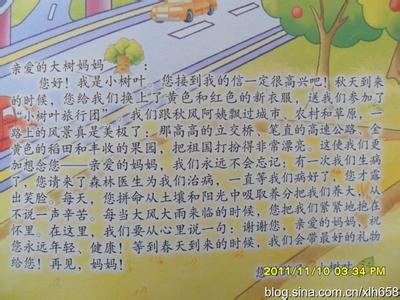 亲爱的大树妈妈 :
您好！我是小树叶，您接到我的信一定很高兴吧！秋天到来
的时候，您给我们换上了黄色和红色的新衣服，送我们参加了
“小树叶旅行团”，我们跟秋风阿姨飘过城市、农村和草原，一
路上的风景真是美极了：那高高的立交桥、笔直的高速公路、金
黄色的稻田和丰收的果园，把祖国打扮得非常漂亮。这使我们更
加想念您——亲爱的妈妈，我们永远不会忘记：有一次我们生病
了，您请来了森林医生为我们治病，一直等我们病好了，您才露
出笑脸。每天，您拼命从土壤和阳光中吸取养分把我们养大，从
不说一声辛苦。每当大风大雨来临的时候，您把我们紧紧地抱在
怀里。在这里，我们要从心里说一句：谢谢您，亲爱的妈妈，祝
您永远年轻、健康！等到春天到来的时候，我们会带最好的礼物
给您！再见，妈妈！
2011/11/10 03:34 PM
blog.sina.com.cn/xlh658